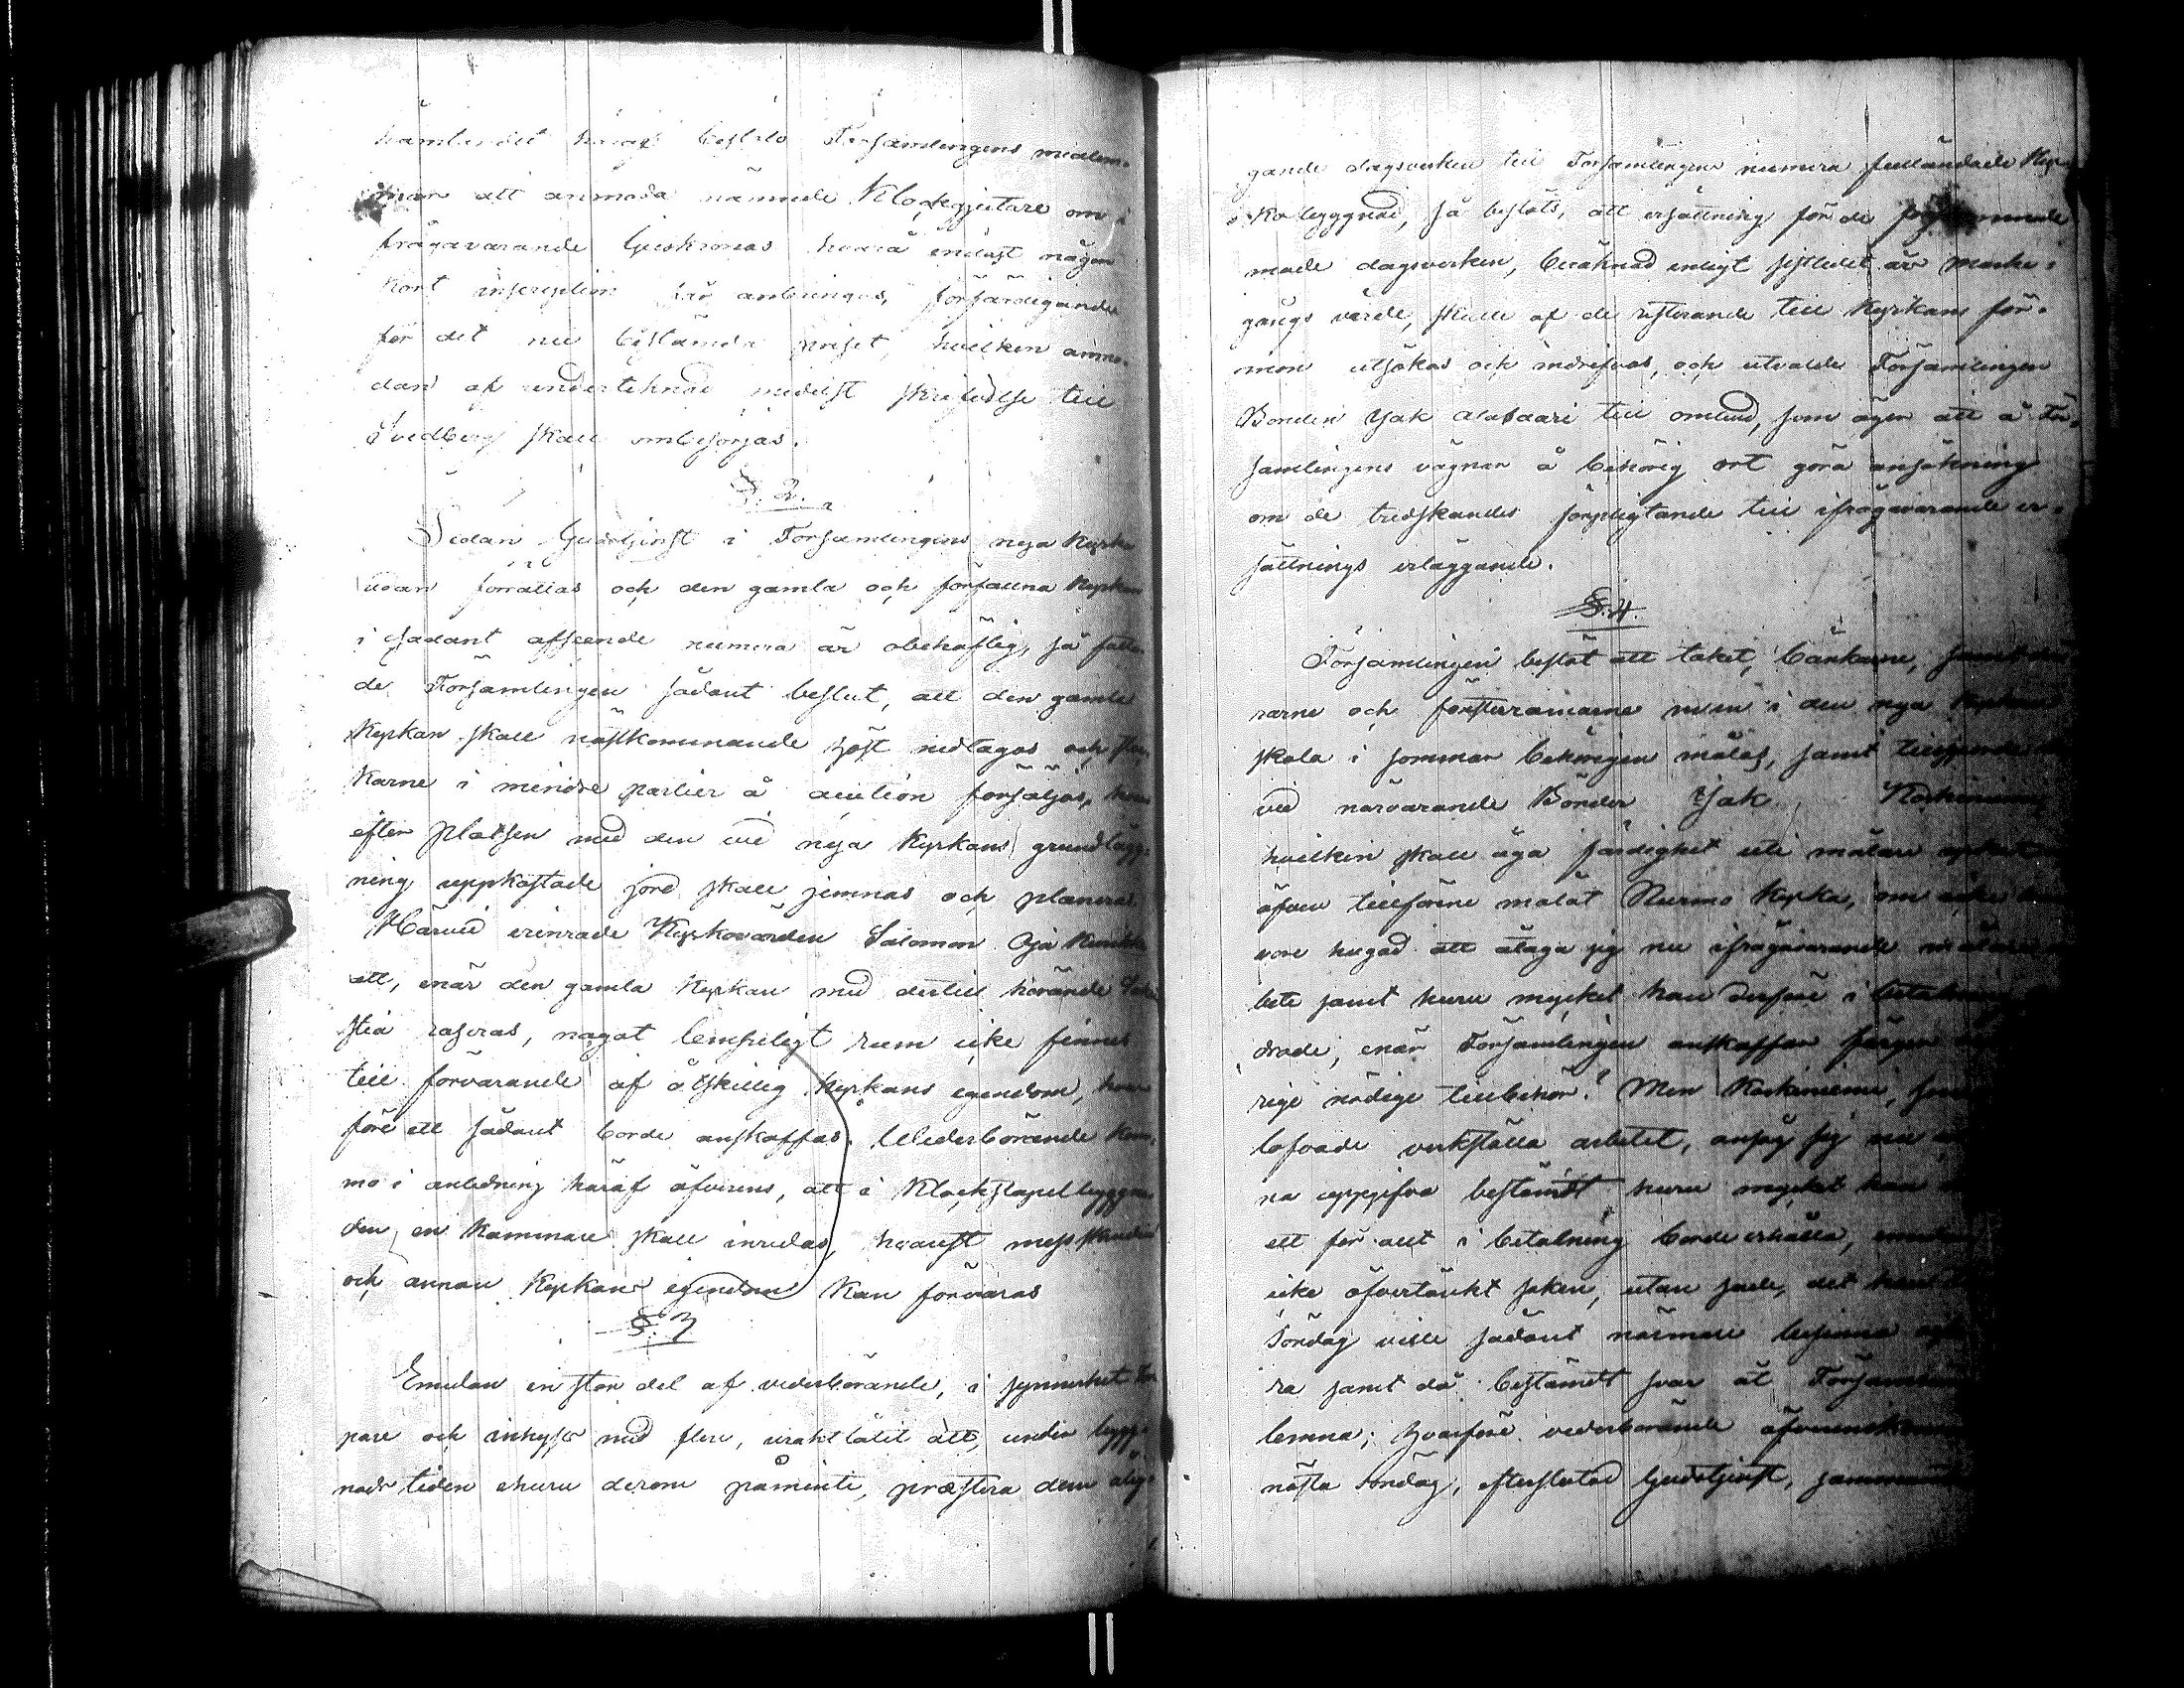 beslöts Församlingens medlem-
mar att anmoda nämnde Klockgjutare om i
frågavarande ljuskronas hvarå endast någon
kort inscription bör anbringas, förfärdigande
för det nu bestämda priset, hvilken anmo-
dan af undertecknad medelst skrifvelse till
Svedberg skall ombesörjas.
§. 2.
Sedan Gudstjenst i Församlingens nya Kyrka
redan förrättas och den gamla och förfallna Kyrkan
i sådant afseende numera är obehöflig, så fatta-
de Församlingen sådant beslut, att den gamla
Kyrkan skall nästkommande höst nedtagas och stoc-
karne i mindre partier å auction försäljas, hvar-
efter platsen med den vid nya Kyrkans grundlägg-
ning uppkastade jord skall jemnas och planeras.
Härvid erinrade Kyrkovärden Salomon Oja
att, enär den gamla Kyrkan med dertill hörande Sakri-
stia raseras, något lempeligt rum icke finnes
till förvarande af åtskillig Kyrkans egendom, hvar-
före ett sådant borde anskaffas. Wederbörande kom-
mo i anledning häraf öfverens, att i Klockstapelbyggna-
den en Kammare skall inredas, hvarest messskruden
och annan Kyrkans egendom kan förvaras
§. 3
Emedan en stor del af vederbörande, i synnerhet Tor-
pare och inhyses med flere, uraktlåtit att, under bygg-
nads tiden ehuru derom påminte, præstera dem ålig-
gande dagsverken till Församlingens numera fulländade Kyr-
kobyggnad, så beslöts, att ersättning för de försummade
dagsverken, beräknad enligt sistledet års marke-
gångs värde, skulle af de resterande till Kyrkans för-
mon utsökas och indrifvas, och utvalde Församlingen
Bonden Isak Alasaari till ombud, som äger att å För-
samlingens vägnar å behörig ort göra ansökning
om de tredskandes förpligtande till ifrågavarande er-
sättnings erläggande.
§. 4.
Församlingen beslöt att taket, bänkarne,
rarne och fönsterramarne i den nya Kyrkan
skola i sommar behörigen målas, samt
vid närvarande Bonden Isak Koskiniemi
hvilken skall äga färdighet uti målare
äfven tillförene målat Nurmo Kyrka, om icke han
vore hugad att åtaga sig nu ifrågavarande målare
bete samt huru mycket han derföre i betalning
drade, enär Församlingen anskaffar färgen
rige nödige tillbehör? Men Koskiniemi, som
lofvade verkställa arbetet, ansåg sig nu
na uppgifva bestämdt huru mycket han
ett för allt i betalning borde erhålla, emedan
icke öfvertänkt saken, utan sade, det han
Söndag ville sådant närmare besinna
ra samt då bestämdt svar åt Församlingen
lemna; hvarföre vederbörande öfverenskommo
nästa söndag, efterslutad Gudstjenst,